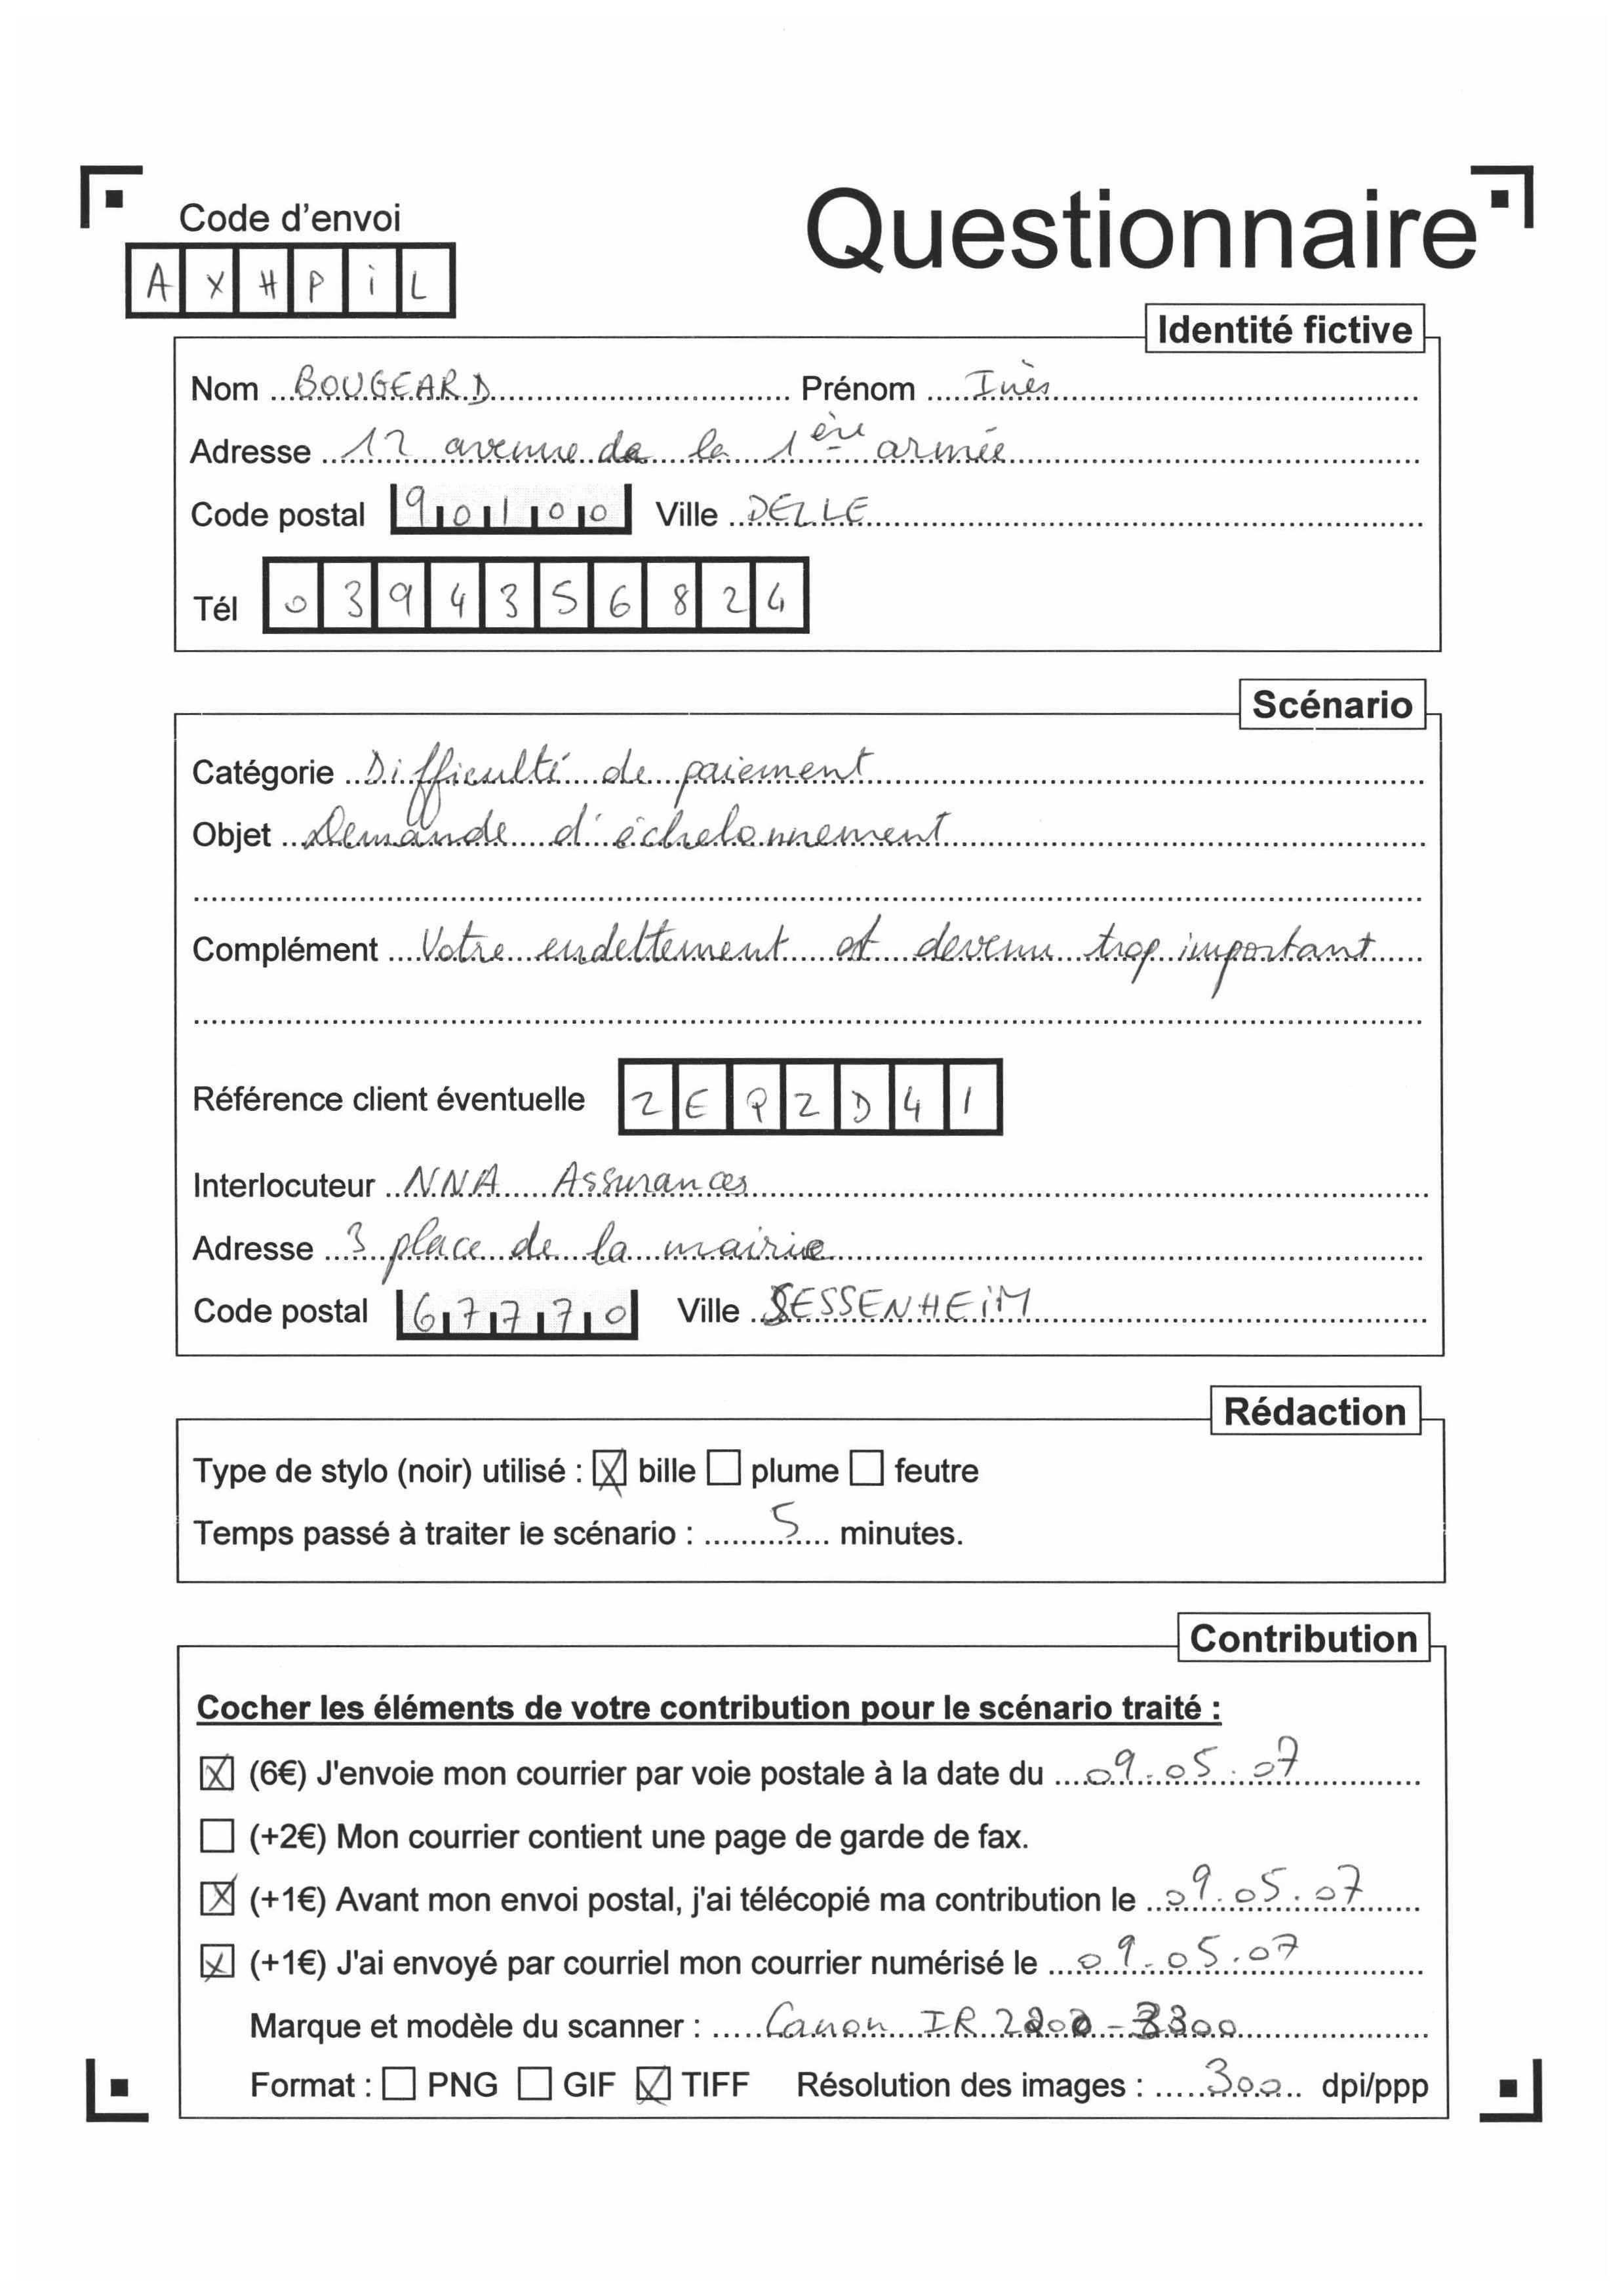 Code d'envoi
Questionnaire
A X H P i L
Identité fictive
Nom BOUGEARD Prénom Inès
Adresse 12 avenue de la 1ère armée
Code postal 90100 Ville DELLE
Tél 0394356824
Scénario
Catégorie Difficulté de paiement
Objet Demande d'échelonnement
Complément Votre endettement est devenu trop important
Référence client éventuelle
Interlocuteur NNA Assurances
Adresse 3 place de la mairie
Code postal 67770 Ville SESSENHEiM
Rédaction
Type de stylo (noir) utilisé : ☒ bille ☐ plume ☐ feutre
Temps passé à traiter le scénario : 5 minutes.
Contribution
Cocher les éléments de votre contribution pour le scénario traité :
☒ (6€) J'envoie mon courrier par voie postale à la date du 09.05.07
☐ (+2€) Mon courrier contient une page de garde de fax.
☒ (+1€) Avant mon envoi postal, j'ai télécopié ma contribution le 09.05.07
☒ (+1€) J'ai envoyé par courriel mon courrier numérisé le 09.05.07
Marque et modèle du scanner : Canon IR
Format : ☐ PNG ☐ GIF ☒ TIFF Résolution des images : 300 dpi/ppp